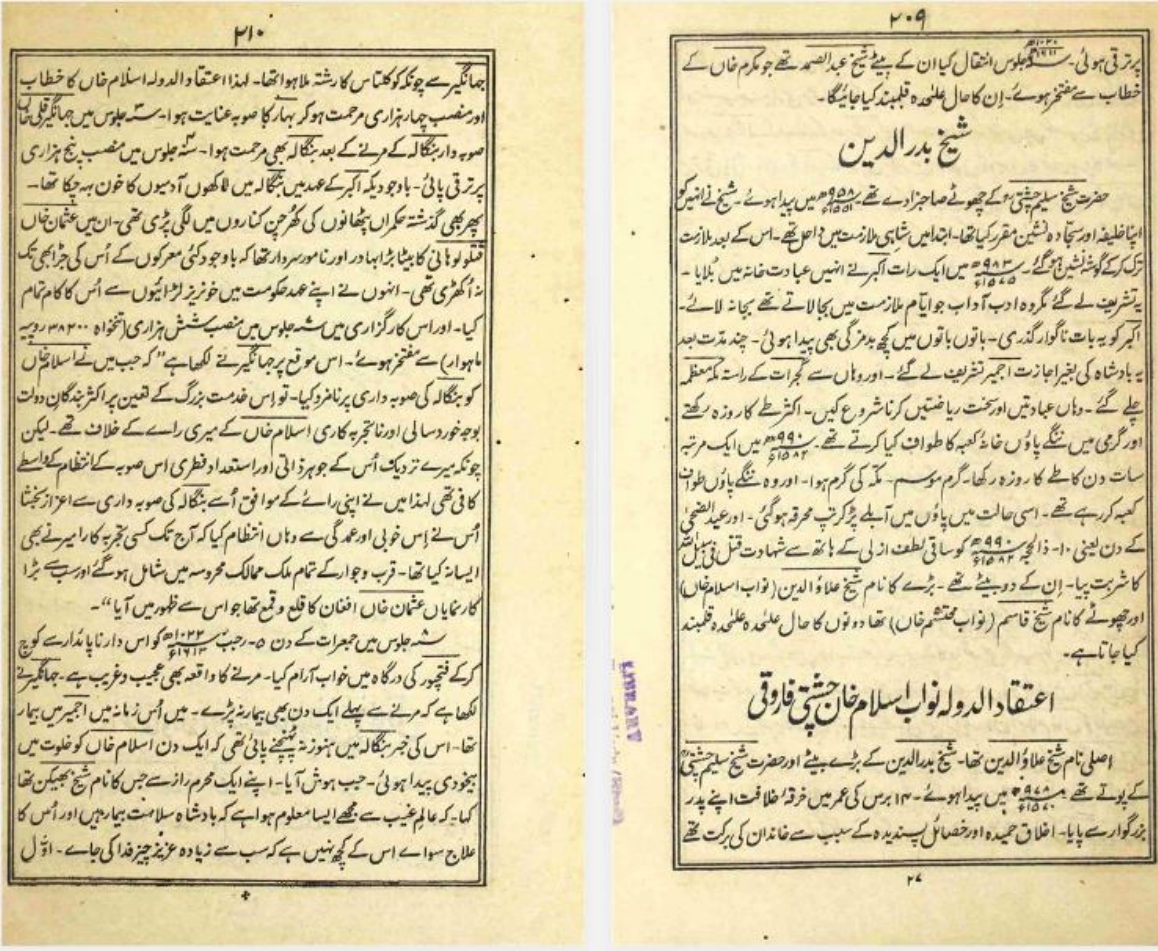 ۲۰۹
پر ترقی ہوئی۔ جلوس انتقال کیا ان کے بیٹے شیخ عبدالصمد تھے جو مکرم خاں کے
خطاب سے مفتخر ہوئے۔ اِن کا حال علٰحدہ قلمبند کیا جائیگا۔
شیخ بدر الدین
حضرت شیخ سلیم چشتیؒ کے چھوٹے صاحبزادے تھے۔ ۹۵۸ھ ۱۵۵۱ء میں پیدا ہوئے۔ شیخ نے انہیں کو
اپنا خلیفہ اور سجادہ نشین مقرر کیا تھا۔ ابتدا میں شاہی ملازمت میں داخل تھے۔ اس کے بعد ملازمت
ترک کر کے گوشہ نشین ہو گئے۔ ۹۸۳ھ ۱۵۷۵ء میں ایک رات اکبر نے انہیں عبادت خانہ میں بُلایا۔
یہ تشریف لے گئے مگر وہ ادب آداب جو ایامِ ملازمت میں بجا لاتے تھے بجا نہ لائے۔
اکبر کو یہ بات ناگوار گذری۔ باتوں باتوں میں کچھ بدمزگی بھی پیدا ہوئی۔ چند مدت بعد
یہ بادشاہ کی بغیر اجازت اجمیر تشریف لے گئے۔ اور وہاں سے گجرات کے راستہ مکہ معظمہ
چلے گئے۔ وہاں عبادتیں اور سخت ریاضتیں کرنا شروع کیں۔ اکثر طے کا روزہ رکھتے
اور گرمی میں ننگے پاؤں خانۂ کعبہ کا طواف کیا کرتے تھے۔ ۹۹۰ھ ۱۵۸۲ء میں ایک مرتبہ
سات دن کا طے کا روزہ رکھا۔ گرم موسم۔ مکہ کی گرم ہوا۔ اور وہ ننگے پاؤں طواف
کعبہ کر رہے تھے۔ اسی حالت میں پاؤں میں آبلے پڑ کر تپ محرقہ ہو گئی۔ اور عید الضحیٰ
کے دن یعنی ۱۰۔ ذالحجہ ۹۹۰ھ ۱۵۸۲ء کو ساقی لطف ازلی کے ہاتھ سے شہادت قتل فی سبیل اللہ
کا شربت پیا۔ اِن کے دو بیٹے تھے۔ بڑے کا نام شیخ علاؤ الدین (نواب اسلام خاں)
اور چھوٹے کا نام شیخ قاسم (نواب محتشم خاں) تھا دونوں کا حال علٰحدہ علٰحدہ قلمبند
کیا جاتا ہے۔
اعتقاد الدولہ نواب اسلام خان چشتی فاروقی
اصلی نام شیخ علاؤ الدین تھا۔ شیخ بدرالدین کے بڑے بیٹے اور حضرت شیخ سلیم چشتیؒ
کے پوتے تھے ۹۷۸ھ ۱۵۷۰ء میں پیدا ہوئے۔ ۱۴ برس کی عمر میں خرقۂ خلافت اپنے پدر
بزرگوار سے پایا۔ اخلاق حمیدہ اور خصائل پسندیدہ کے سبب سے خاندان کی برکت تھے
۲۷
LIBRARY
۲۱۰
جہانگیر سے چونکہ کوکلتاس کا رشتہ ملا ہوا تھا۔ لہذا اعتقاد الدولہ اسلام خاں کا خطاب
اور منصب چہار ہزاری مرحمت ہو کر بہار کا صوبہ عنایت ہوا۔ جلوس میں جہانگیر قلی خاں
صوبہ دار بنگالہ کے مرنے کے بعد بنگالہ بھی مرحمت ہوا۔ جلوس میں منصب پنج ہزاری
پر ترقی پائی۔ باوجودیکہ اکبر کے عہد میں بنگالہ میں لاکھوں آدمیوں کا خون بہہ چکا تھا۔
پھر بھی گذشتہ حکمراں پٹھانوں کی کھرچن کناروں میں لگی پڑی تھی۔ ان میں عثمان خاں
قتلو لوہانی کا بیٹا بڑا بہادر اور نامور سردار تھا کہ باوجود کئی معرکوں کے اُس کی جڑ ابھی تک
نہ اُکھڑی تھی۔ انہوں نے اپنے عہد حکومت میں خونریز لڑائیوں سے اُس کا کام تمام
کیا۔ اور اس کارگزاری میں جلوس میں منصب شش ہزاری (تنخواہ ۳۸۲۰۰ روپیہ
ماہوار) سے مفتخر ہوئے۔ اس موقع پر جہانگیر نے لکھا ہے "کہ جب میں نے اسلام خاں
کو بنگالہ کی صوبہ داری پر نامزد کیا۔ تو اِس خدمت بزرگ کے تعین پر اکثر بندگانِ دولت
بوجہ خورد سالی اور ناتجربہ کاری اسلام خاں کے میری رائے کے خلاف تھے۔ لیکن
چونکہ میرے نزدیک اُس کے جوہر ذاتی اور استعداد فطری اس صوبہ کے انتظام کے واسطے
کافی تھی لہذا میں نے اپنی رائے کے موافق اُسے بنگالہ کی صوبہ داری سے اعزاز بخشا
اُس نے اِس خوبی اور عمدگی سے وہاں انتظام کیا کہ آج تک کسی تجربہ کار امیر نے بھی
ایسا نہ کیا تھا۔ قرب و جوار کے تمام ملک ممالک محروسہ میں شامل ہو گئے اور سب سے بڑا
کار نمایاں عثمان خاں افغان کا قلع و قمع تھا جو اس سے ظہور میں آیا"۔
جلوس میں جمعرات کے دن ۵۔ رجب ۱۰۲۲ھ ۱۶۱۳ء کو اس دار ناپائدار سے کوچ
کر کے فتحپور کی درگاہ میں خواب آرام کیا۔ مرنے کا واقعہ بھی عجیب و غریب ہے۔ جہانگیر نے
لکھا ہے کہ مرنے سے پہلے ایک دن بھی بیمار نہ پڑے۔ میں اُس زمانہ میں اجمیر میں بیمار
تھا۔ اس کی خبر بنگالہ میں ہنوز نہ پُہنچنے پائی تھی کہ ایک دن اسلام خاں کو خلوت میں
بیخودی پیدا ہوئی۔ جب ہوش آیا۔ اپنے ایک محرم راز سے جس کا نام شیخ بھیکن تھا
کہا۔ کہ عالمِ غیب سے مجھے ایسا معلوم ہوا ہے کہ بادشاہ سلامت بیمار ہیں اور اُس کا
علاج سوائے اس کے کچھ نہیں ہے کہ سب سے زیادہ عزیز چیز فدا کی جائے۔ اوّل